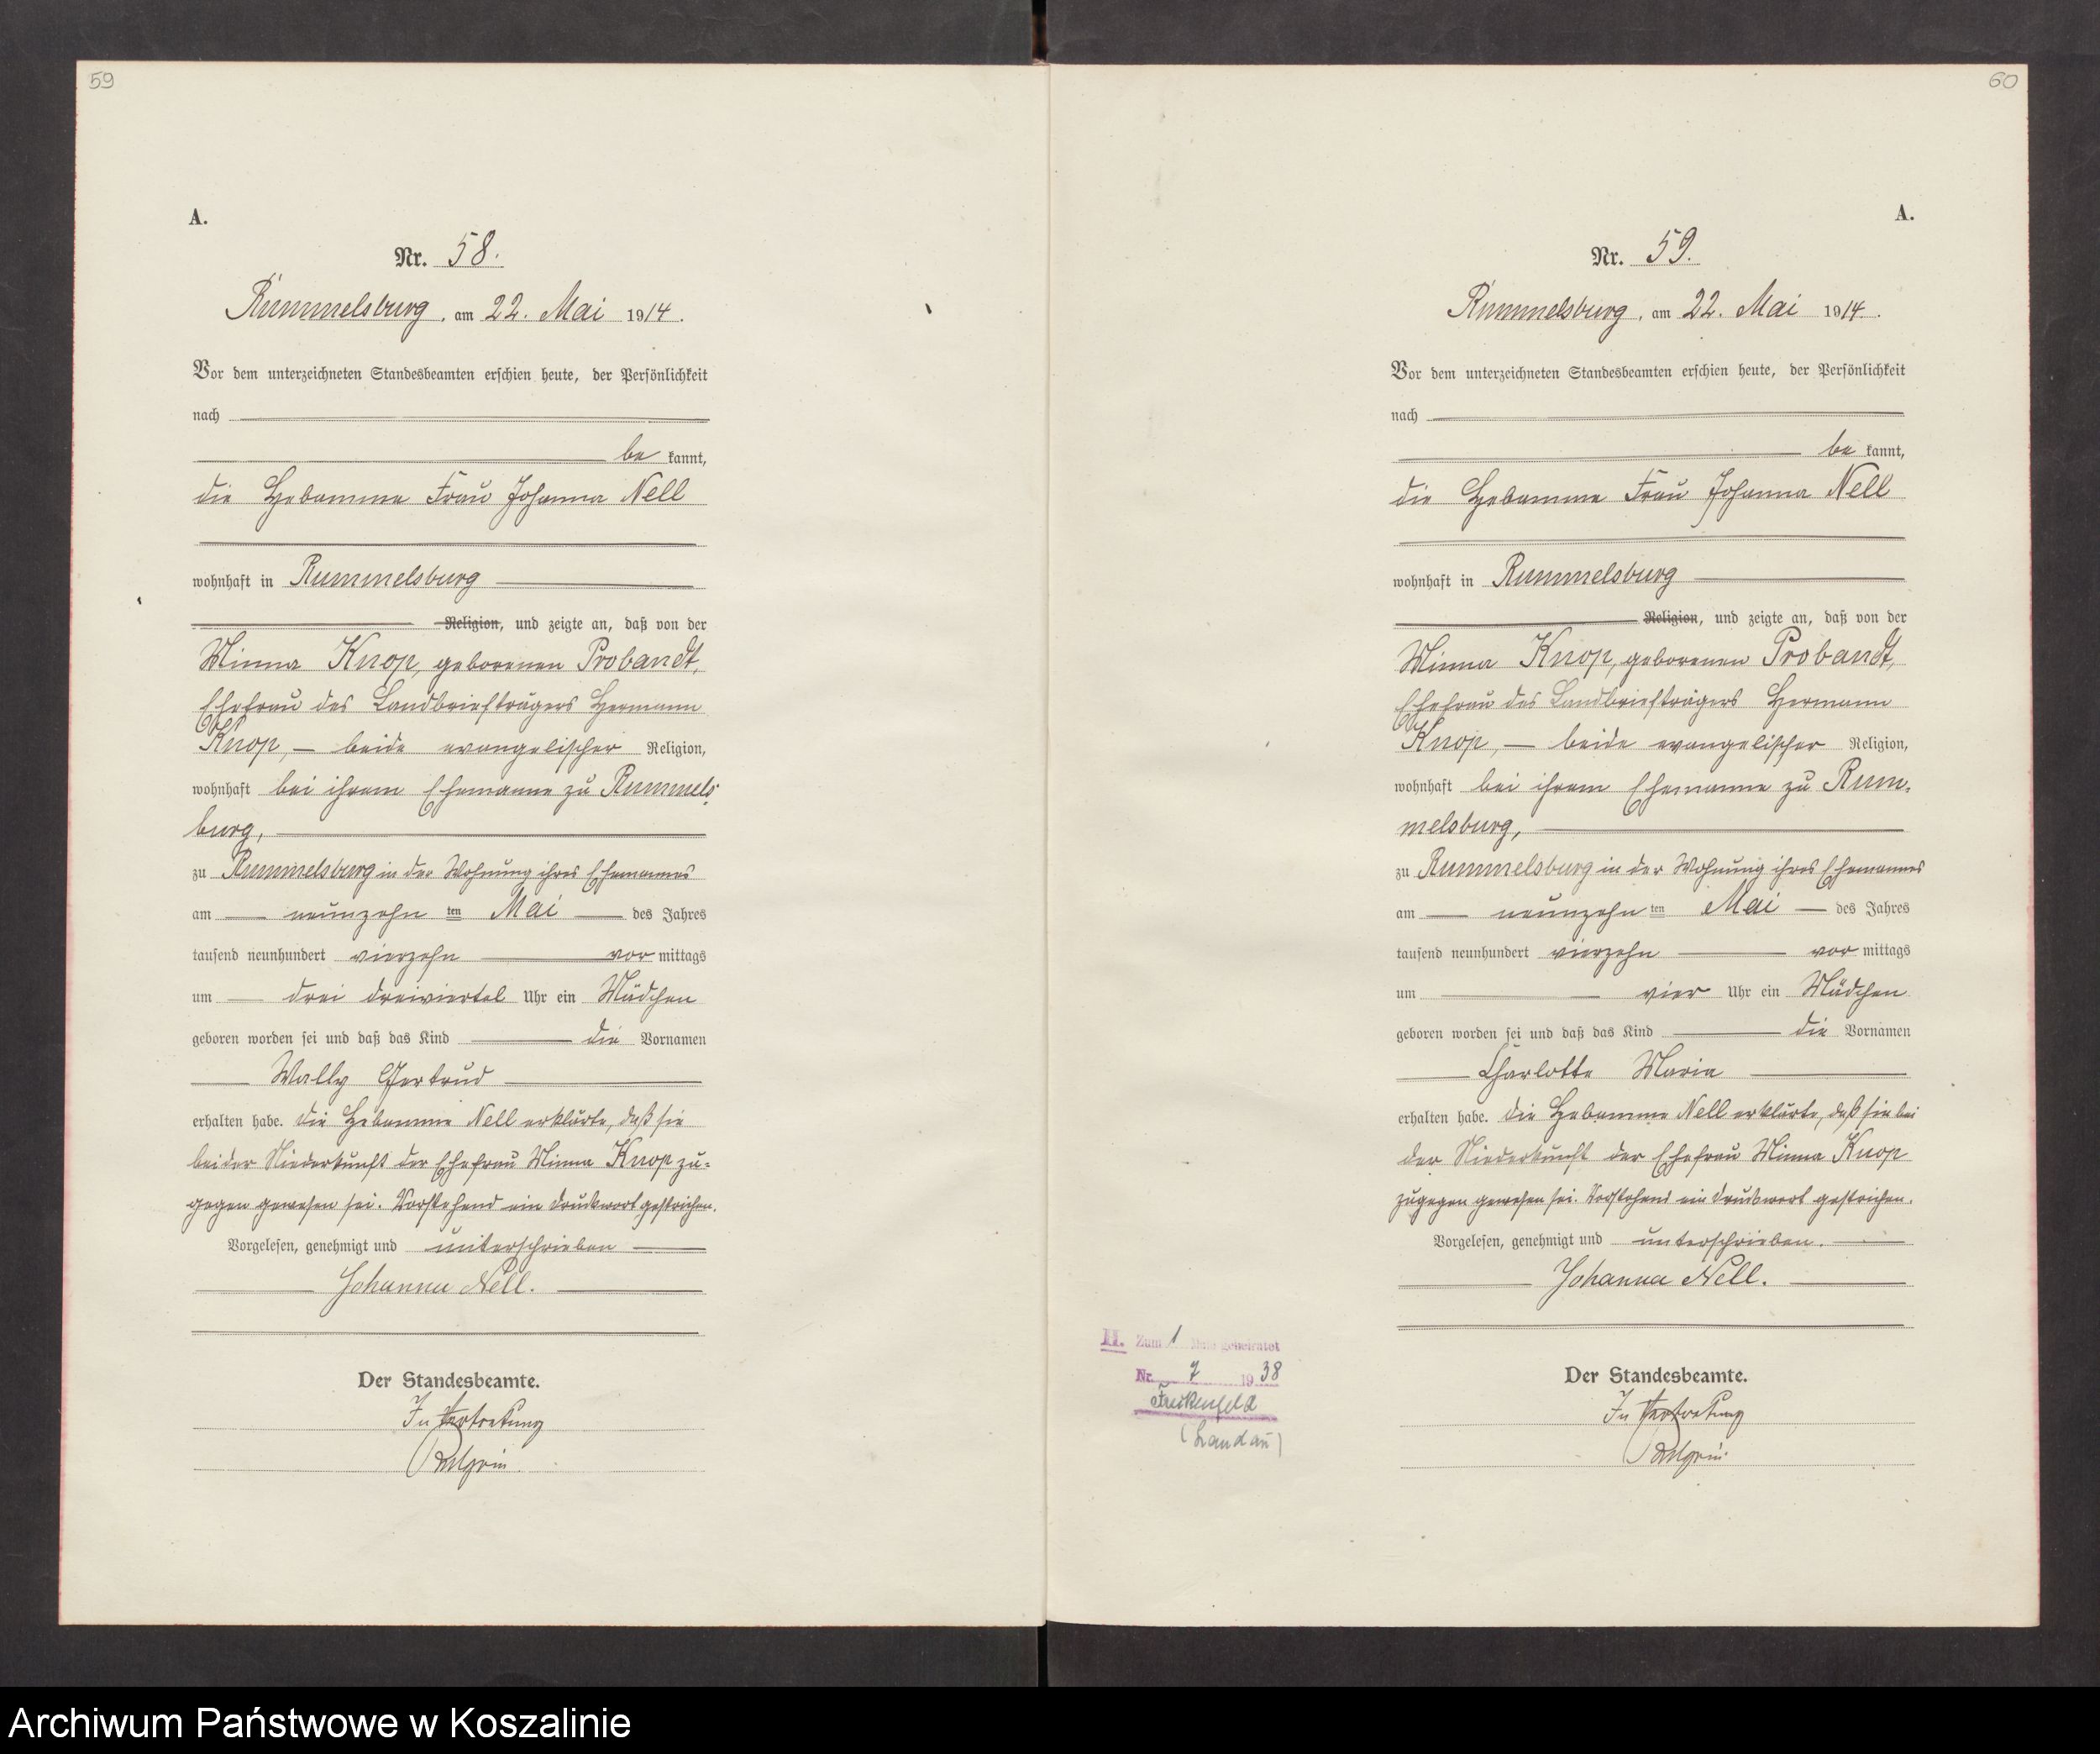 59
A.
Nr. 58.
Rummelsburg, am 22. Mai 1914.
Vor dem unterzeichneten Standesbeamten erschien heute, der Persönlichkeit
nach
be kannt,
die Hebamme Frau Johanna Nell
wohnhaft in Rummelsburg
Religion, und zeigte an, daß von der
Minna Knop, geborenen Probandt,
Ehefrau des Landbriefträgers Hermann
Knop, — beide evangelischer Religion,
wohnhaft bei ihrem Ehemanne zu Rummels-
burg,
zu Rummelsburg in der Wohnung ihres Ehemannes
am neunzehn ten Mai des Jahres
tausend neunhundert vierzehn vor mittags
um drei dreiviertel Uhr ein Mädchen
geboren worden sei und daß das Kind die Vornamen
Wally Gertrud
erhalten habe. Die Hebamme Nell erklärte, daß sie
bei der Niederkunft der Ehefrau Minna Knop zu=
gegen gewesen sei. Vorstehend ein Druckwort gestrichen.
Vorgelesen, genehmigt und unterschrieben
Johanna Nell.
Der Standesbeamte.
In Vertretung
60
A.
Nr. 59.
Rummelsburg, am 22. Mai 1914.
Vor dem unterzeichneten Standesbeamten erschien heute, der Persönlichkeit
nach
be kannt,
die Hebamme Frau Johanna Nell
wohnhaft in Rummelsburg
Religion, und zeigte an, daß von der
Minna Knop, geborenen Probandt,
Ehefrau des Landbriefträgers Hermann
Knop, — beide evangelischer Religion,
wohnhaft bei ihrem Ehemanne zu Rum-
melsburg,
zu Rummelsburg in der Wohnung ihres Ehemannes
am neunzehn ten Mai des Jahres
tausend neunhundert vierzehn vor mittags
um vier Uhr ein Mädchen
geboren worden sei und daß das Kind die Vornamen
Charlotte Maria
erhalten habe. Die Hebamme Nell erklärte, daß sie bei
der Niederkunft der Ehefrau Minna Knop
zugegen gewesen sei. Vorstehend ein Druckwort gestrichen.
Vorgelesen, genehmigt und unterschrieben.
Johanna Nell.
H. Zum 1 Mal geheiratet
Nr. 7 1938
Freckenfeld
(Landau)
Der Standesbeamte.
In Vertretung
Archiwum Państwowe w Koszalinie